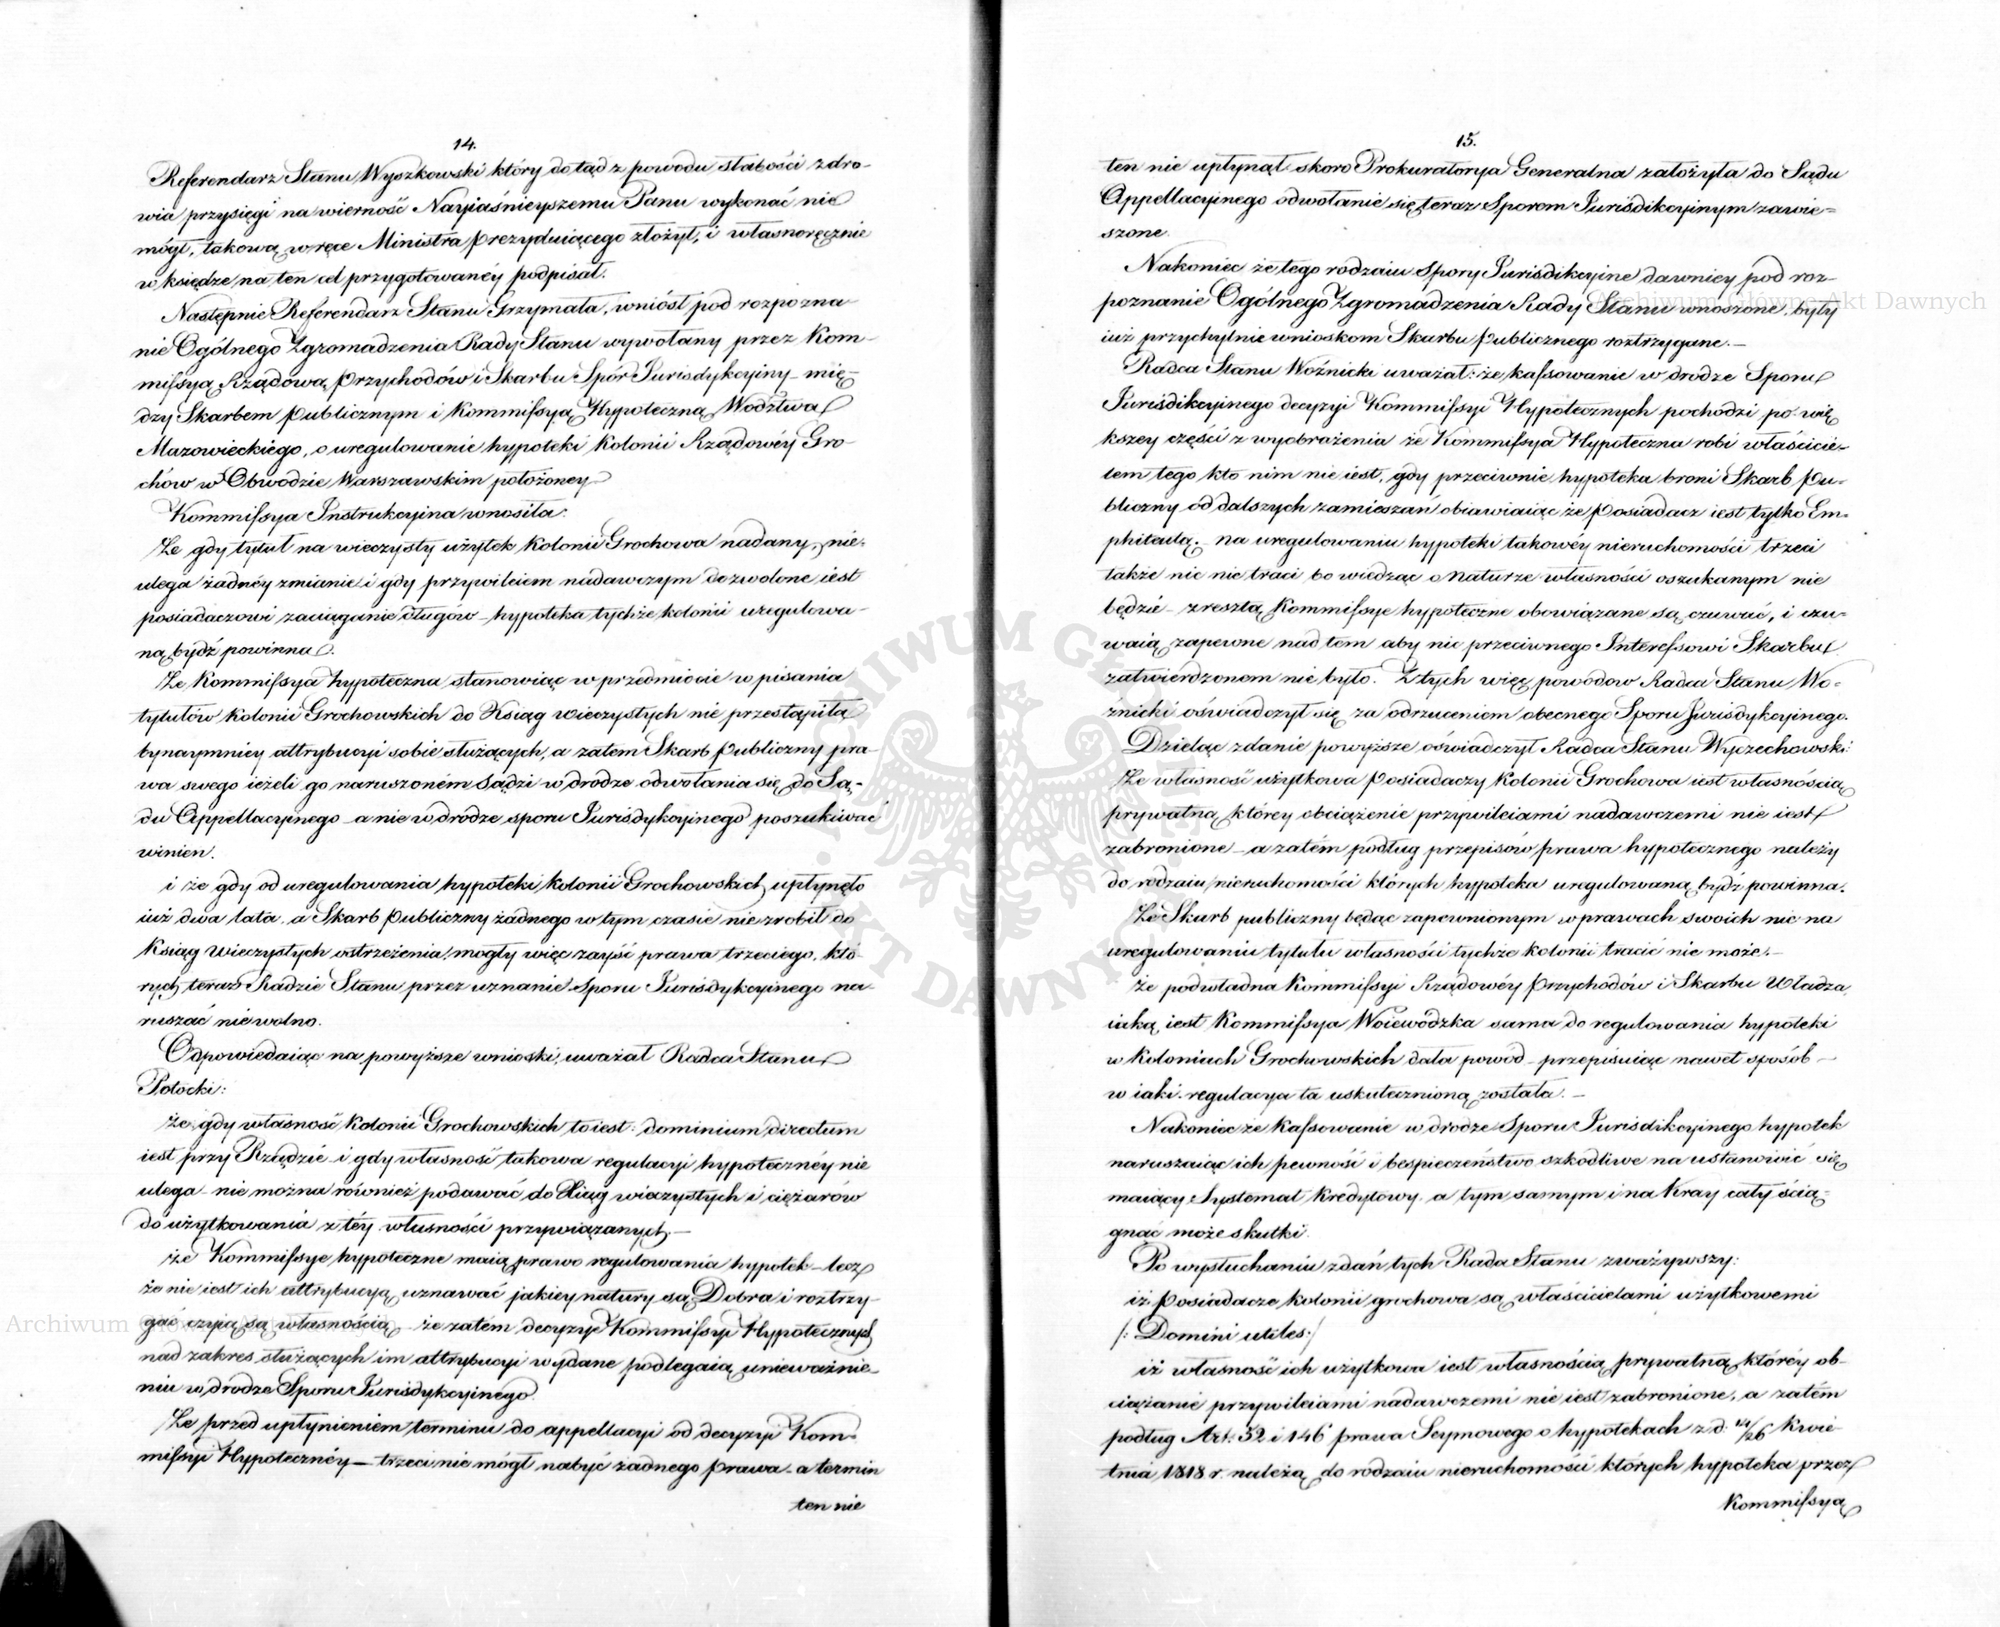 14.
Referendarz Stanu Wyszkowski który dotąd z powodu słabości zdro-
wia przysięgi na wierność Nayiaśnieyszemu Panu wykonać nie
mógł, takową w ręce Ministra prezyduiącego złożył, i własnoręcznie
w księdze na ten cel przygotowanéy podpisał.
Następnie Referendarz Stanu Grzymała, wniósł pod rozpozna
nie Ogólnego Zgromadzenia Rady Stanu wywołany przez Kom-
missyą Rządową Przychodów i Skarbu Spór Jurisdykcyiny mię-
dzy Skarbem publicznym i Kommissyą Hypoteczną Wodztwa
Mazowieckiego, o uregulowanie hypoteki Kolonii Rządowéy Gro
chów w Obwodzie Warszawskim położoney
Kommissya Instrukcyina wnosiła:
Że gdy tytuł na wieczysty użytek Kolonii Grochowa nadany, nie-
ulega żadnéy zmianie i gdy przywileiem nadawczym dozwolone iest
posiadaczowi zaciąganie długów – hypoteka tychże kolonii uregulowa-
ną bydź powinna.
Że Kommissya hypoteczna stanowiąc w przedmiocie wpisania
tytułów Kolonii Grochowskich do Ksiąg wieczystych nie przestąpiła
bynaymniey attrybucyi sobie służących, a zatem Skarb publiczny pra-
wa swego ieżeli go naruszoném sądzi w drodze odwołania się do Są-
du Appellacyinego a nie w drodze sporu Jurisdykcyinego poszukiwać
winien.
i że gdy od uregulowania hypoteki kolonii Grochowskich upłynęło
iuż dwa lata a Skarb publiczny żadnego w tym czasie nie zrobił do
Ksiąg wieczystych ostrzeżenia, mogły więc zayść prawa trzeciego, któ-
rych teraz Radzie Stanu przez uznanie Sporu Jurisdykcyinego na-
ruszać nie wolno.
Odpowiedaiąc na powyższe wnioski, uważał Radca Stanu
Potocki:
że gdy własność Kolonii Grochowskich to iest: dominium directum
iest przy Rządzie i gdy własność takowa regulacyi hypotecznéy nie
ulega – nie można również podawać do Xiąg wieczystych i ciężarów
do użytkowania z téy własności przywiązanych. –
że Kommissye hypoteczne maią prawo regulowania hypotek – lecz
że nie iest ich attrybucyą uznawać jakiey natury są Dobra i roztrzy-
gać czyią są własnością – że zatem decyzye Kommissyi Hypotecznych
nad zakres służących im attrybucyi wydane podlegaią unieważnie-
niu w drodze Sporu Jurisdykcyinego.
Że przed upłynieniem terminu do appellacyi od decyzyi Kom-
missyi Hypotecznéy – trzeci nie mógł nabyć żadnego prawa – a termin
ten nie
15.
ten nie upłynął skoro Prokuratorya Generalna założyła do Sądu
Appellacyinego odwołanie się teraz Sporem Jurisdikcyinym zawie-
szone.
Nakoniec że tego rodzaiu Spory Jurisdikcyine dawniey pod roz-
poznanie Ogólnego Zgromadzenia Rady Stanu wnoszone, były
iuż przychylnie wnioskom Skarbu publicznego roztrzygane. –
Radca Stanu Woźnicki uważał: że kassowanie w drodze Sporu
Jurisdikcyinego decyzyi Kommissyi Hypotecznych pochodzi po wię
kszey części z wyobrażenia że Kommissya Hypoteczna robi właścicie-
lem tego kto nim nie iest, gdy przeciwnie hypoteka broni Skarb pu-
bliczny od dalszych zamieszań obiawiaiąc że posiadacz iest tylko Em-
phiteutą. – na uregulowaniu hypoteki takowéy nieruchomości trzeci
także nic nie traci bo wiedząc o naturze własności oszukanym nie
będzie – zresztą Kommissye hypoteczne obowiązane są czuwać, i czu-
waią zapewne nad tem aby nic przeciwnego Interessowi Skarbu
zatwierdzonem nie było. Z tych więc powodow Radca Stanu Wo-
źnicki oświadczył się za odrzuceniem obecnego Sporu Jurisdykcyinego.
Dzieląc zdanie powyższe oświadczył Radca Stanu Wyczechowski:
Że własność użytkowa posiadaczy Kolonii Grochowa iest własnością
prywatną którey obciążenie przywileiami nadawczemi nie iest
zabronione – a zatém podług przepisów prawa hypotecznego należy
do rodzaiu nieruchomości których hypoteka uregulowaną bydź powinna.
Że Skarb publiczny będąc zapewnionym w prawach swoich nic na
uregulowaniu tytułu własności tychże kolonii tracić nie może. –
że podwładna Kommissyi Rządowéy Przychodów i Skarbu Władza
iaką iest Kommissya Woiewódzka sama do regulowania hypoteki
w koloniach Grochowskich dała powód – przepisuiąc nawet sposób –
w iaki regulacya ta uskutecznioną została. –
Nakoniec że kassowanie w drodze Sporu Jurisdikcyinego hypotek
naruszaiąc ich pewność i bespieczeństwo szkodliwe na ustanowić się
maiący Systemat Kredytowy a tym samym i na Kray cały ścią-
gnąć może skutki.
Po wysłuchaniu zdań tych Rada Stanu zważywszy:
iż posiadacze kolonii grochowa są właścicielami użytkowemi
/: Domini utiles :/
iż własność ich użytkowa iest własnością prywatną któréy ob-
ciążanie przywileiami nadawczemi nie iest zabronione, a zatém
podług Art. 52 i 146 prawa Seymowego o hypotekach z d. 14/26 Kwie-
tnia 1818 r. należą do rodzaiu nieruchomości których hypoteka przez
Kommissyą
Archiwum Główne Akt Dawnych
Archiwum Główne Akt Dawnych
ARCHIWUM GŁÓWNE AKT DAWNYCH